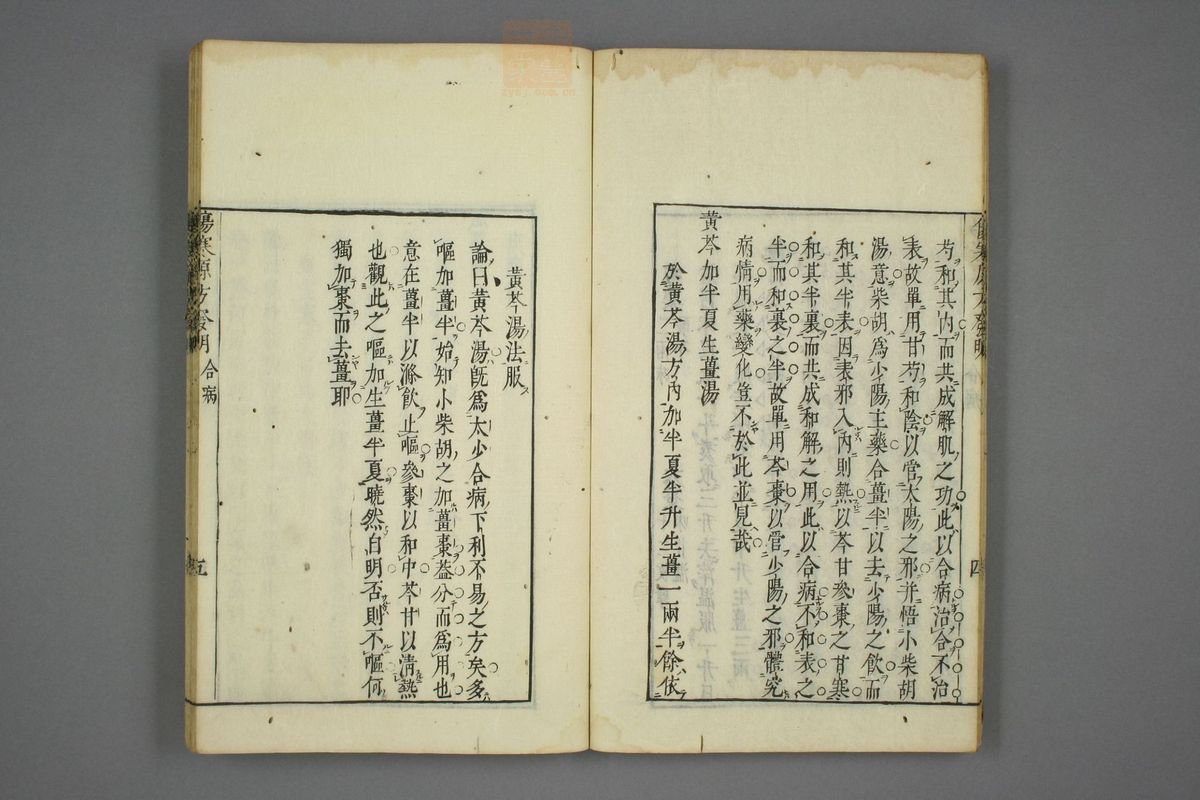 芍和其内而共成解肌之功此以合病治合不治
表故單用甘芍和陰以管太陽之邪并悟小柴胡
湯意柴胡爲少陽主藥合薑半以去少陽之飲而
和其半表因表邪入内則熱以芩甘參棗之甘寒
和其半裏而共成和解之用此以合病不和表之
半而和裏之半故單用芩棗以管少陽之邪體究
病情用藥變化豈不於此並見哉
黃芩加半夏生薑湯
於黃芩湯方内加半夏半升生薑一兩半餘依
四
黃芩湯法服
論曰黃芩湯既爲太少合病下利不易之方矣多
嘔加薑半始知小柴胡之加薑棗葢分而爲用也
意在薑半以滌飲止嘔參棗以和中芩甘以清熱
也觀此之嘔加生薑半夏曉然自明否則不嘔何
獨加棗而去薑耶
傷寒原方發明 合病 五
zysj.com.cn